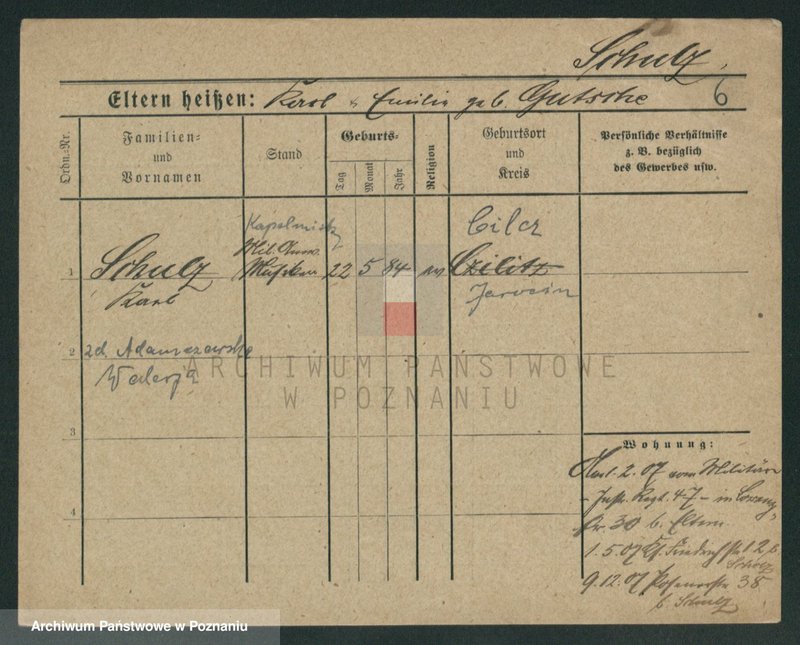 Schulz
Eltern heißen: Karl u Emilie geb. Gutsche 6
Ordn.-Nr.
Familien-
und
Vornamen
Stand
Geburts-
Tag
Monat
Jahr
Religion
Geburtsort
und
Kreis
Persönliche Verhältnisse
z. B. bezüglich
des Gewerbes usw.
1
Schulz
Karl
Mil.
22 5 84 ev
Cilcz
Czilitz
Jarocin
2
zd. Adamczewska
Walerja
ARCHIWUM PAŃSTWOWE
W POZNANIU
3
4
Wohnung:
2. 07 vom Militär
- Inftr. Regt. 47 - in
Str. 30 b. Eltern
1. 5. 07
9. 12. 07 Posenerstr 38
b. Schulz
Archiwum Państwowe w Poznaniu